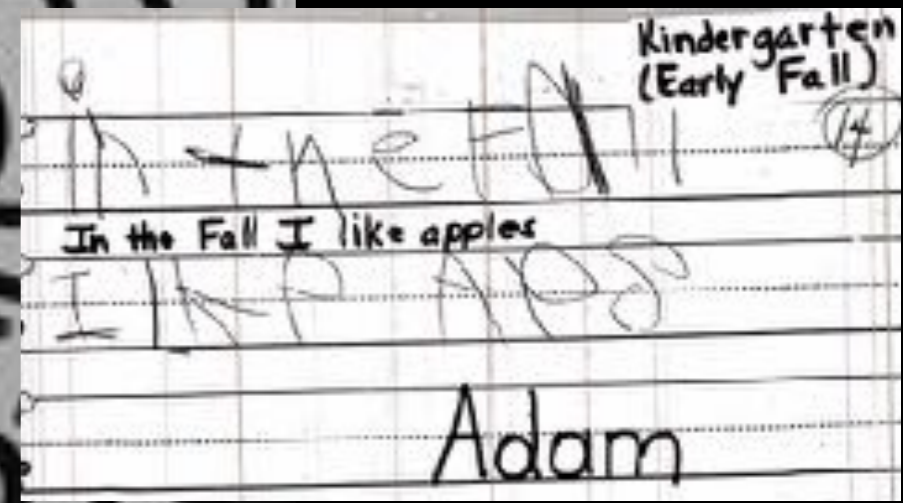 Kindergarten
(Early Fall)
14
in the FAll
In the Fall I like apples
I lKP APS
Adam